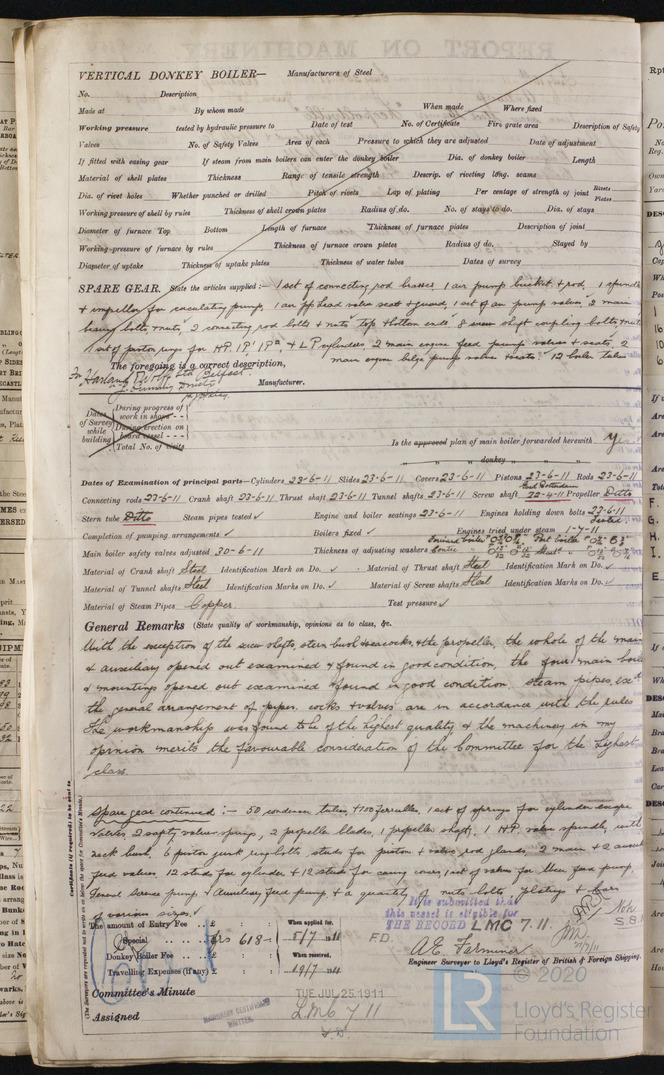 VERTICAL DONKEY BOILER— Manufacturers of Steel
No. Description
Made at By whom made When made Where fixed
Working pressure tested by hydraulic pressure to Date of test No. of Certificate Fire grate area Description of Safety
Valves No. of Safety Valves Area of each Pressure to which they are adjusted Date of adjustment
If fitted with easing gear If steam from main boilers can enter the donkey boiler Dia. of donkey boiler Length
Material of shell plates Thickness Range of tensile strength Descrip. of riveting long. seams
Dia. of rivet holes Whether punched or drilled Pitch of rivets Lap of plating Per centage of strength of joint Rivets Plates
Working pressure of shell by rules Thickness of shell crown plates Radius of do. No. of stays to do. Dia. of stays
Diameter of furnace Top Bottom Length of furnace Thickness of furnace plates Description of joint
Working pressure of furnace by rules Thickness of furnace crown plates Radius of do. Stayed by
Diameter of uptake Thickness of uptake plates Thickness of water tubes Dates of survey
SPARE GEAR. State the articles supplied:— 1 set of connecting rod brasses 1 air pump bucket & rod, 1 spindle
& impellor for circulating pump, 1 air pp head valve seat & guard, 1 set of air pump valves 2 main
bearing bolts & nuts, 2 connecting rod bolts & nuts top & bottom ends 8 screw shaft coupling bolts & nuts
1 set of piston rings for H.P. & L P cylinders, 2 main engine feed pump valves & seats, 2
main engine bilge pump valves & seats 12 boiler tubes
The foregoing is a correct description,
For Harland & Wolff Ltd Belfast Manufacturer.
Dates of Survey while building
During progress of work in shops - -
During erection on board vessel - - -
Total No. of visits
Is the approved plan of main boiler forwarded herewith Yes
" " donkey " " "
Dates of Examination of principal parts—Cylinders 23-6-11 Slides 23-6-11 Covers 23-6-11 Pistons 23-6-11 Rods 23-6-11
Connecting rods 23-6-11 Crank shaft 23-6-11 Thrust shaft 23-6-11 Tunnel shafts 23-6-11 Screw shaft 22-4-11 Propeller Ditto
Stern tube Ditto Steam pipes tested ✓ Engine and boiler seatings 23-6-11 Engines holding down bolts 23-6-11
Completion of pumping arrangements ✓ Boilers fixed ✓ Engines tried under steam 1-7-11
Main boiler safety valves adjusted 30-6-11 Thickness of adjusting washers
Material of Crank shaft Steel Identification Mark on Do. ✓ Material of Thrust shaft Steel Identification Mark on Do. ✓
Material of Tunnel shafts Steel Identification Marks on Do. ✓ Material of Screw shafts Steel Identification Marks on Do. ✓
Material of Steam Pipes Copper Test pressure ✓
General Remarks (State quality of workmanship, opinions as to class, &c.
With the exception of the screw shafts, stern bush & seacocks, & the propeller, the whole of the main
& auxiliary opened out examined & found in good condition, the four main boilers
& mountings opened out examined & found in good condition, steam pipes,
the general arrangement of pipes, cocks & valves are in accordance with the rules
The workmanship was found to be of the highest quality & the machinery in my
opinion merits the favourable consideration of the Committee for the highest
class.
Spare gear continued:— 50 condenser tubes, & 100 ferrules, 1 set of springs for cylinder escape
valves, 2 safety valve springs, 2 propeller blades, 1 propeller shaft, 1 H.P. valve spindle, with
neck bush, 6 piston junk ring bolts, studs for piston & valve rod glands, 2 main & 2
feed valves, 12 studs for cylinder & 12 studs for casing cover, 1 set of valves for feed pump,
General Service pump & Auxiliary feed pump & a quantity of nuts bolts plating & bars
of various sizes.
(The Surveyors are requested not to write on or below the space for Committee's Minute.)
The amount of Entry Fee . . £ : :
Special . . . . £ 618 -
Donkey Boiler Fee . . . £ : :
Travelling Expenses (if any) £ : :
When applied for. 5/7 1911
When received. 19/7 1911
It is submitted that
this vessel is eligible for
THE RECORD LMC 7. 11
F.D.
Engineer Surveyor to Lloyd's Register of British & Foreign Shipping.
Committee's Minute TUE. JUL 25 1911
Assigned LMC 7 11
F.D.
MACHINERY CERTIFICATE
WRITTEN.
© 2020
LR
Lloyd's Register
Foundation